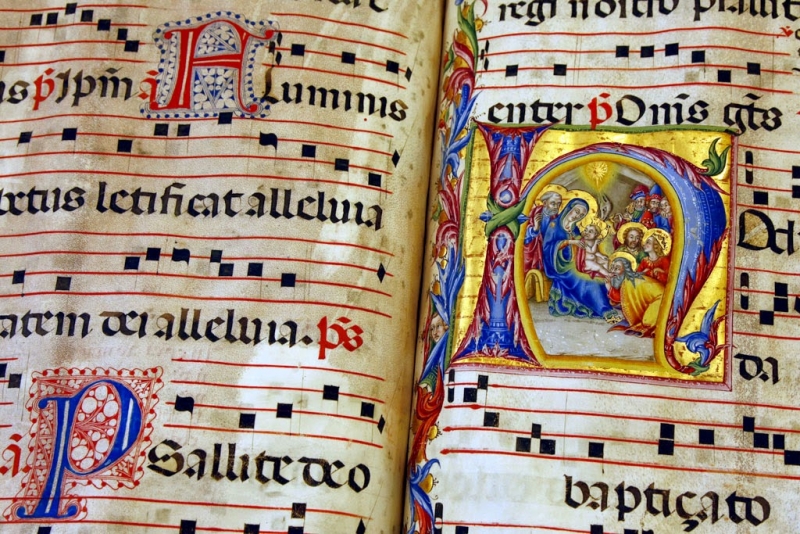 us p̃ Ipm̃ ã Fluminis
etus letificat alleluia
tatem dei alleluia. p̃s
ã. PSallite deo
regi nostro psallit
enter p̃ Om̃s gẽs
HOdi
da
baptiçato